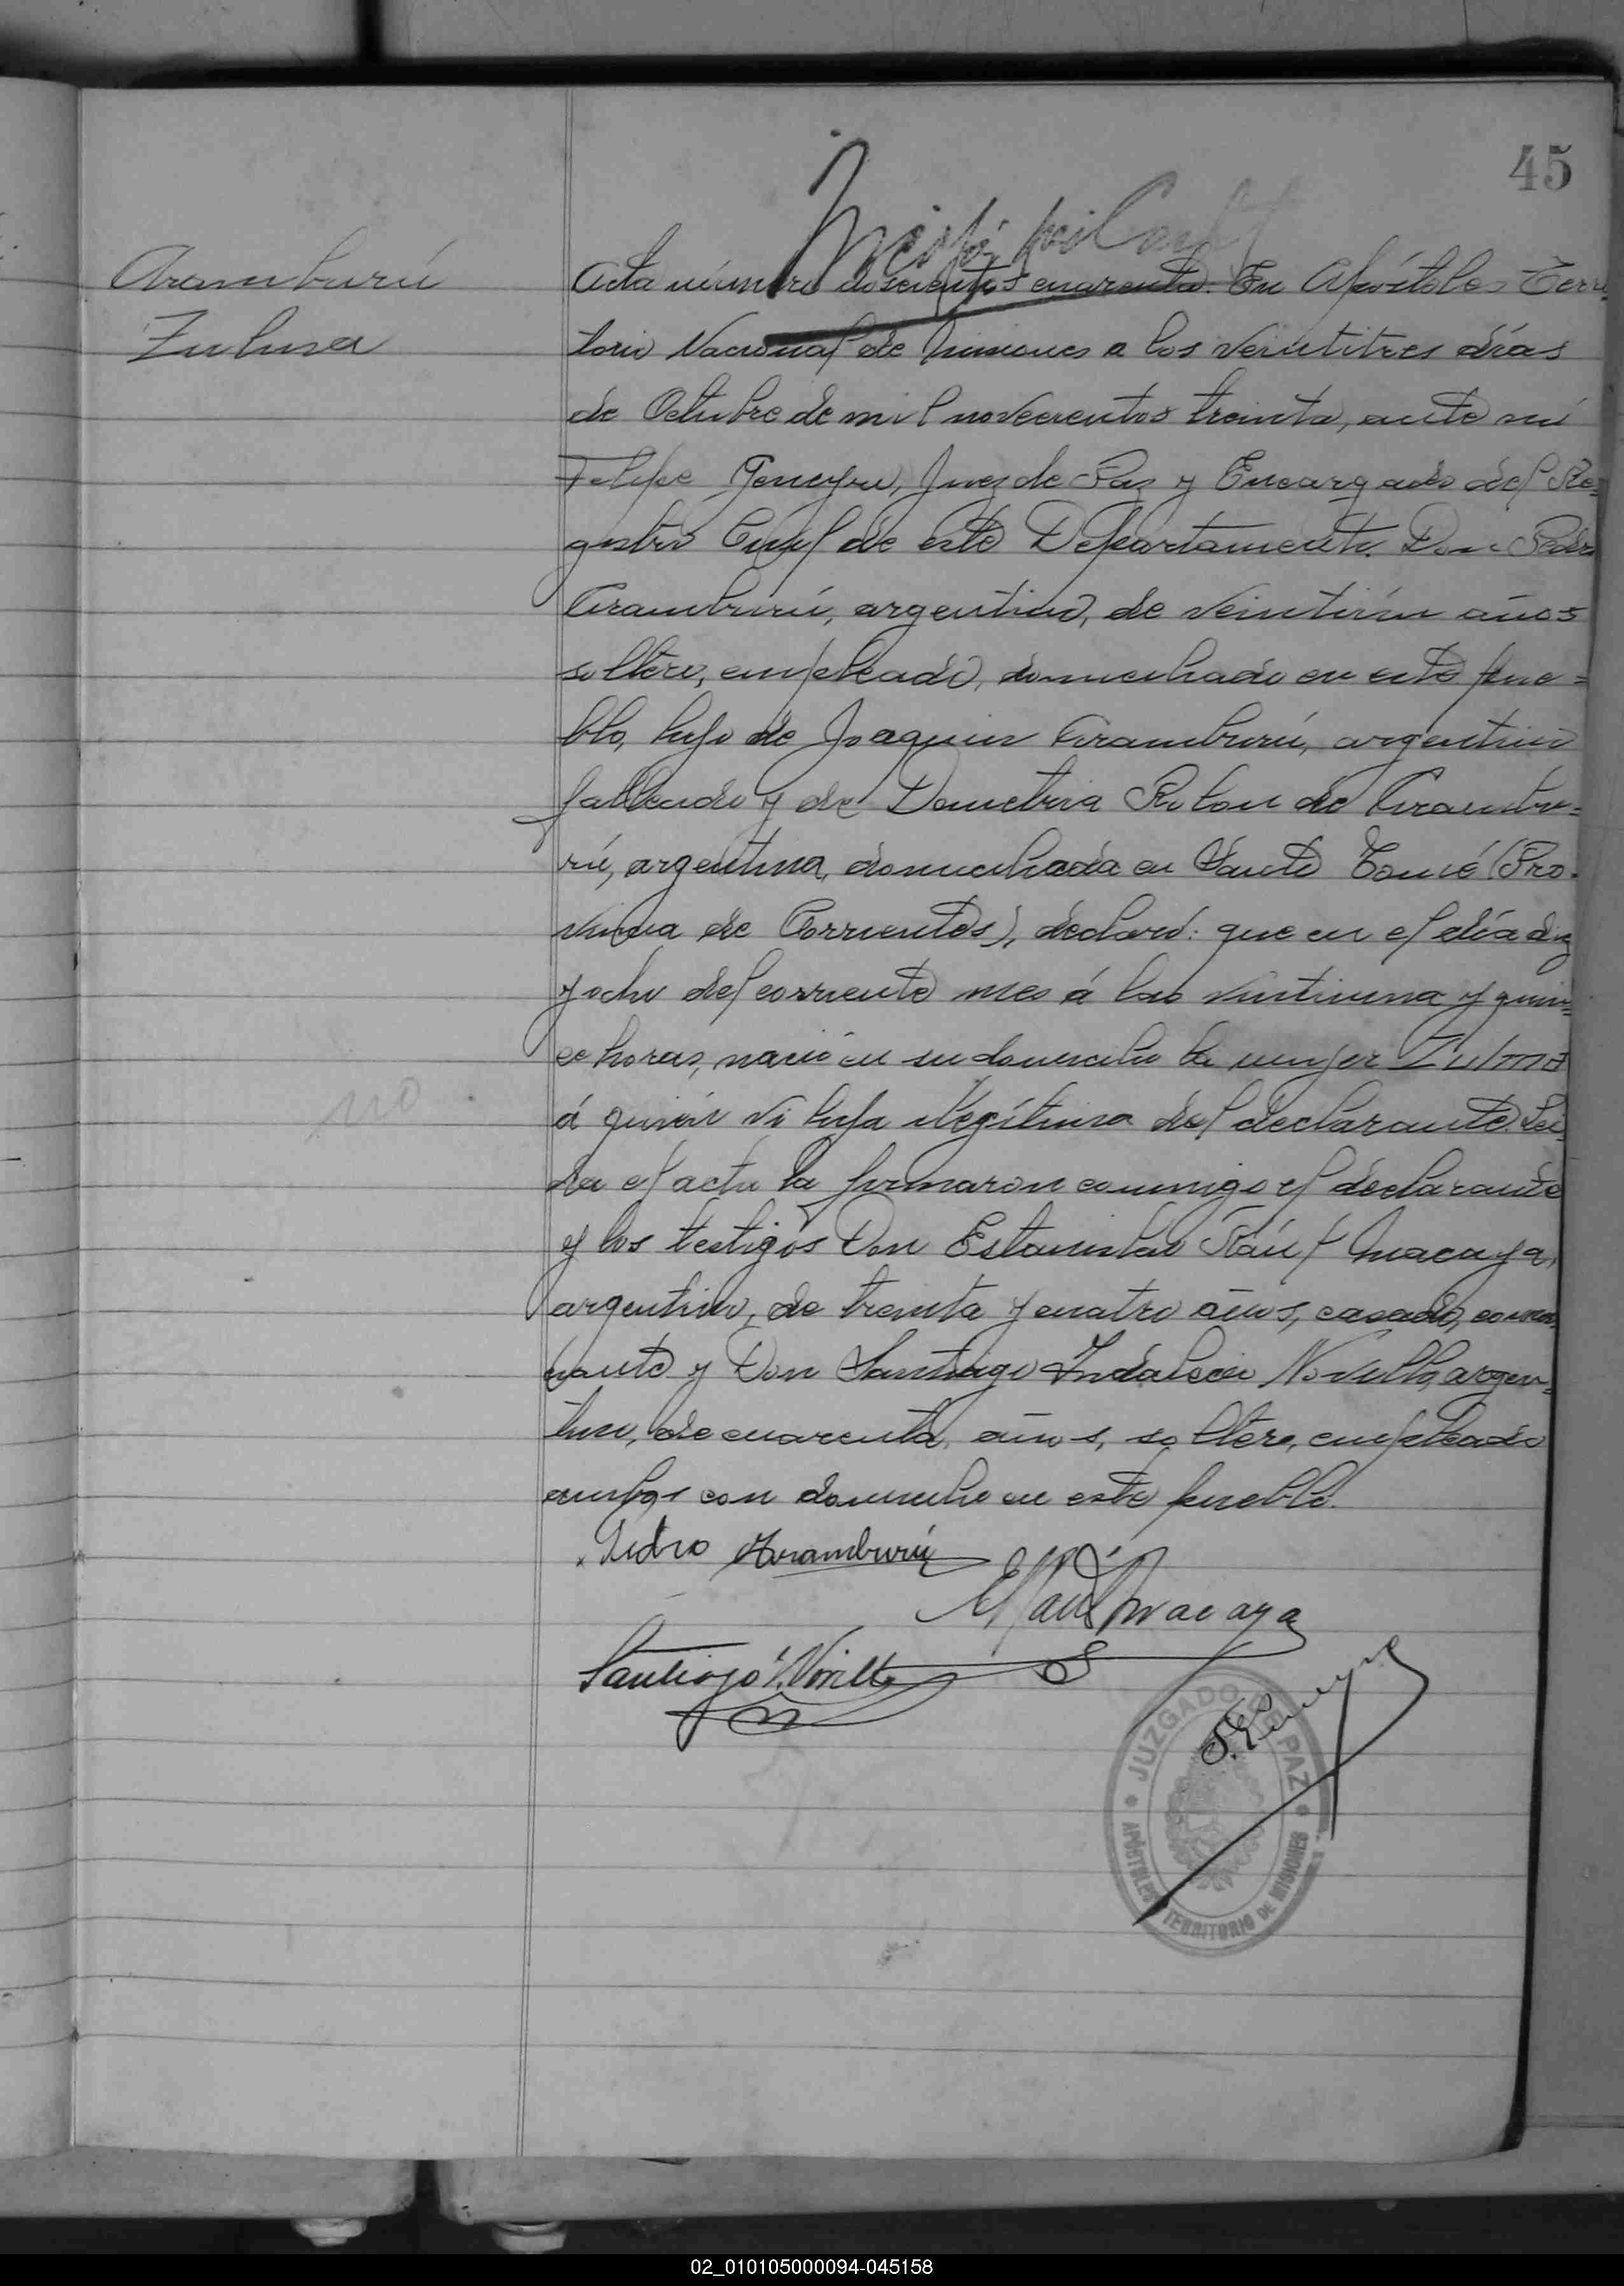 45
Aramburú
Zulma
Acta número doscientos cuarenta. En Apóstoles Terri
torio Nacional de Misiones a los veintitres días
de Octubre de mil novecientos treinta, ante mí
Felipe Juez de Paz y Encargado del Re=
gistro Civil de este Departamento. Don Pedro
Aramburú, argentino, de veintiún años
soltero, empleado, domiciliado en este pue=
blo, hijo de Joaquin Aramburú, argentino
fallecido y de Demetria de Arambu=
rú, argentina, domiciliada en Santo Tomé (Pro-
vincia de Corrientes), declaró: que en el día diez
y ocho del corriente mes á las veintiuna y quin=
ce horas, nació en su domicilio la mujer Zulma
á quien ví hija ilegítima del declarante. Lei
da el acta la firmaron conmigo el declarante
y los testigos Don Estanislao Raúl Macaya,
argentino, de treinta y cuatro años, casado, comer
ciante y Don Santiago Indalecio Novello, argen=
tino, de cuarenta, años, soltero, empleado
ambos con domicilio en este pueblo.
no
Pedro Aramburú
E Raúl Macaya
Santiago I. Novello
JUZGADO DE PAZ
APÓSTOLES TERRITORIO DE MISIONES
02_010105000094-045158